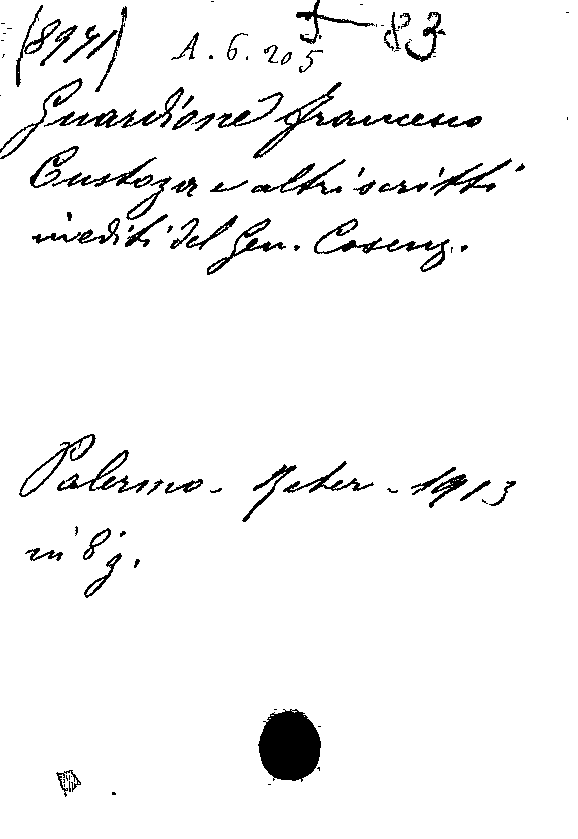 (8971) A. 6. 205 83
Guardione Francesco
Custoza e altri scritti
inediti del Gen. Cosenz.
Palermo - Reber - 1913
in 8 g.